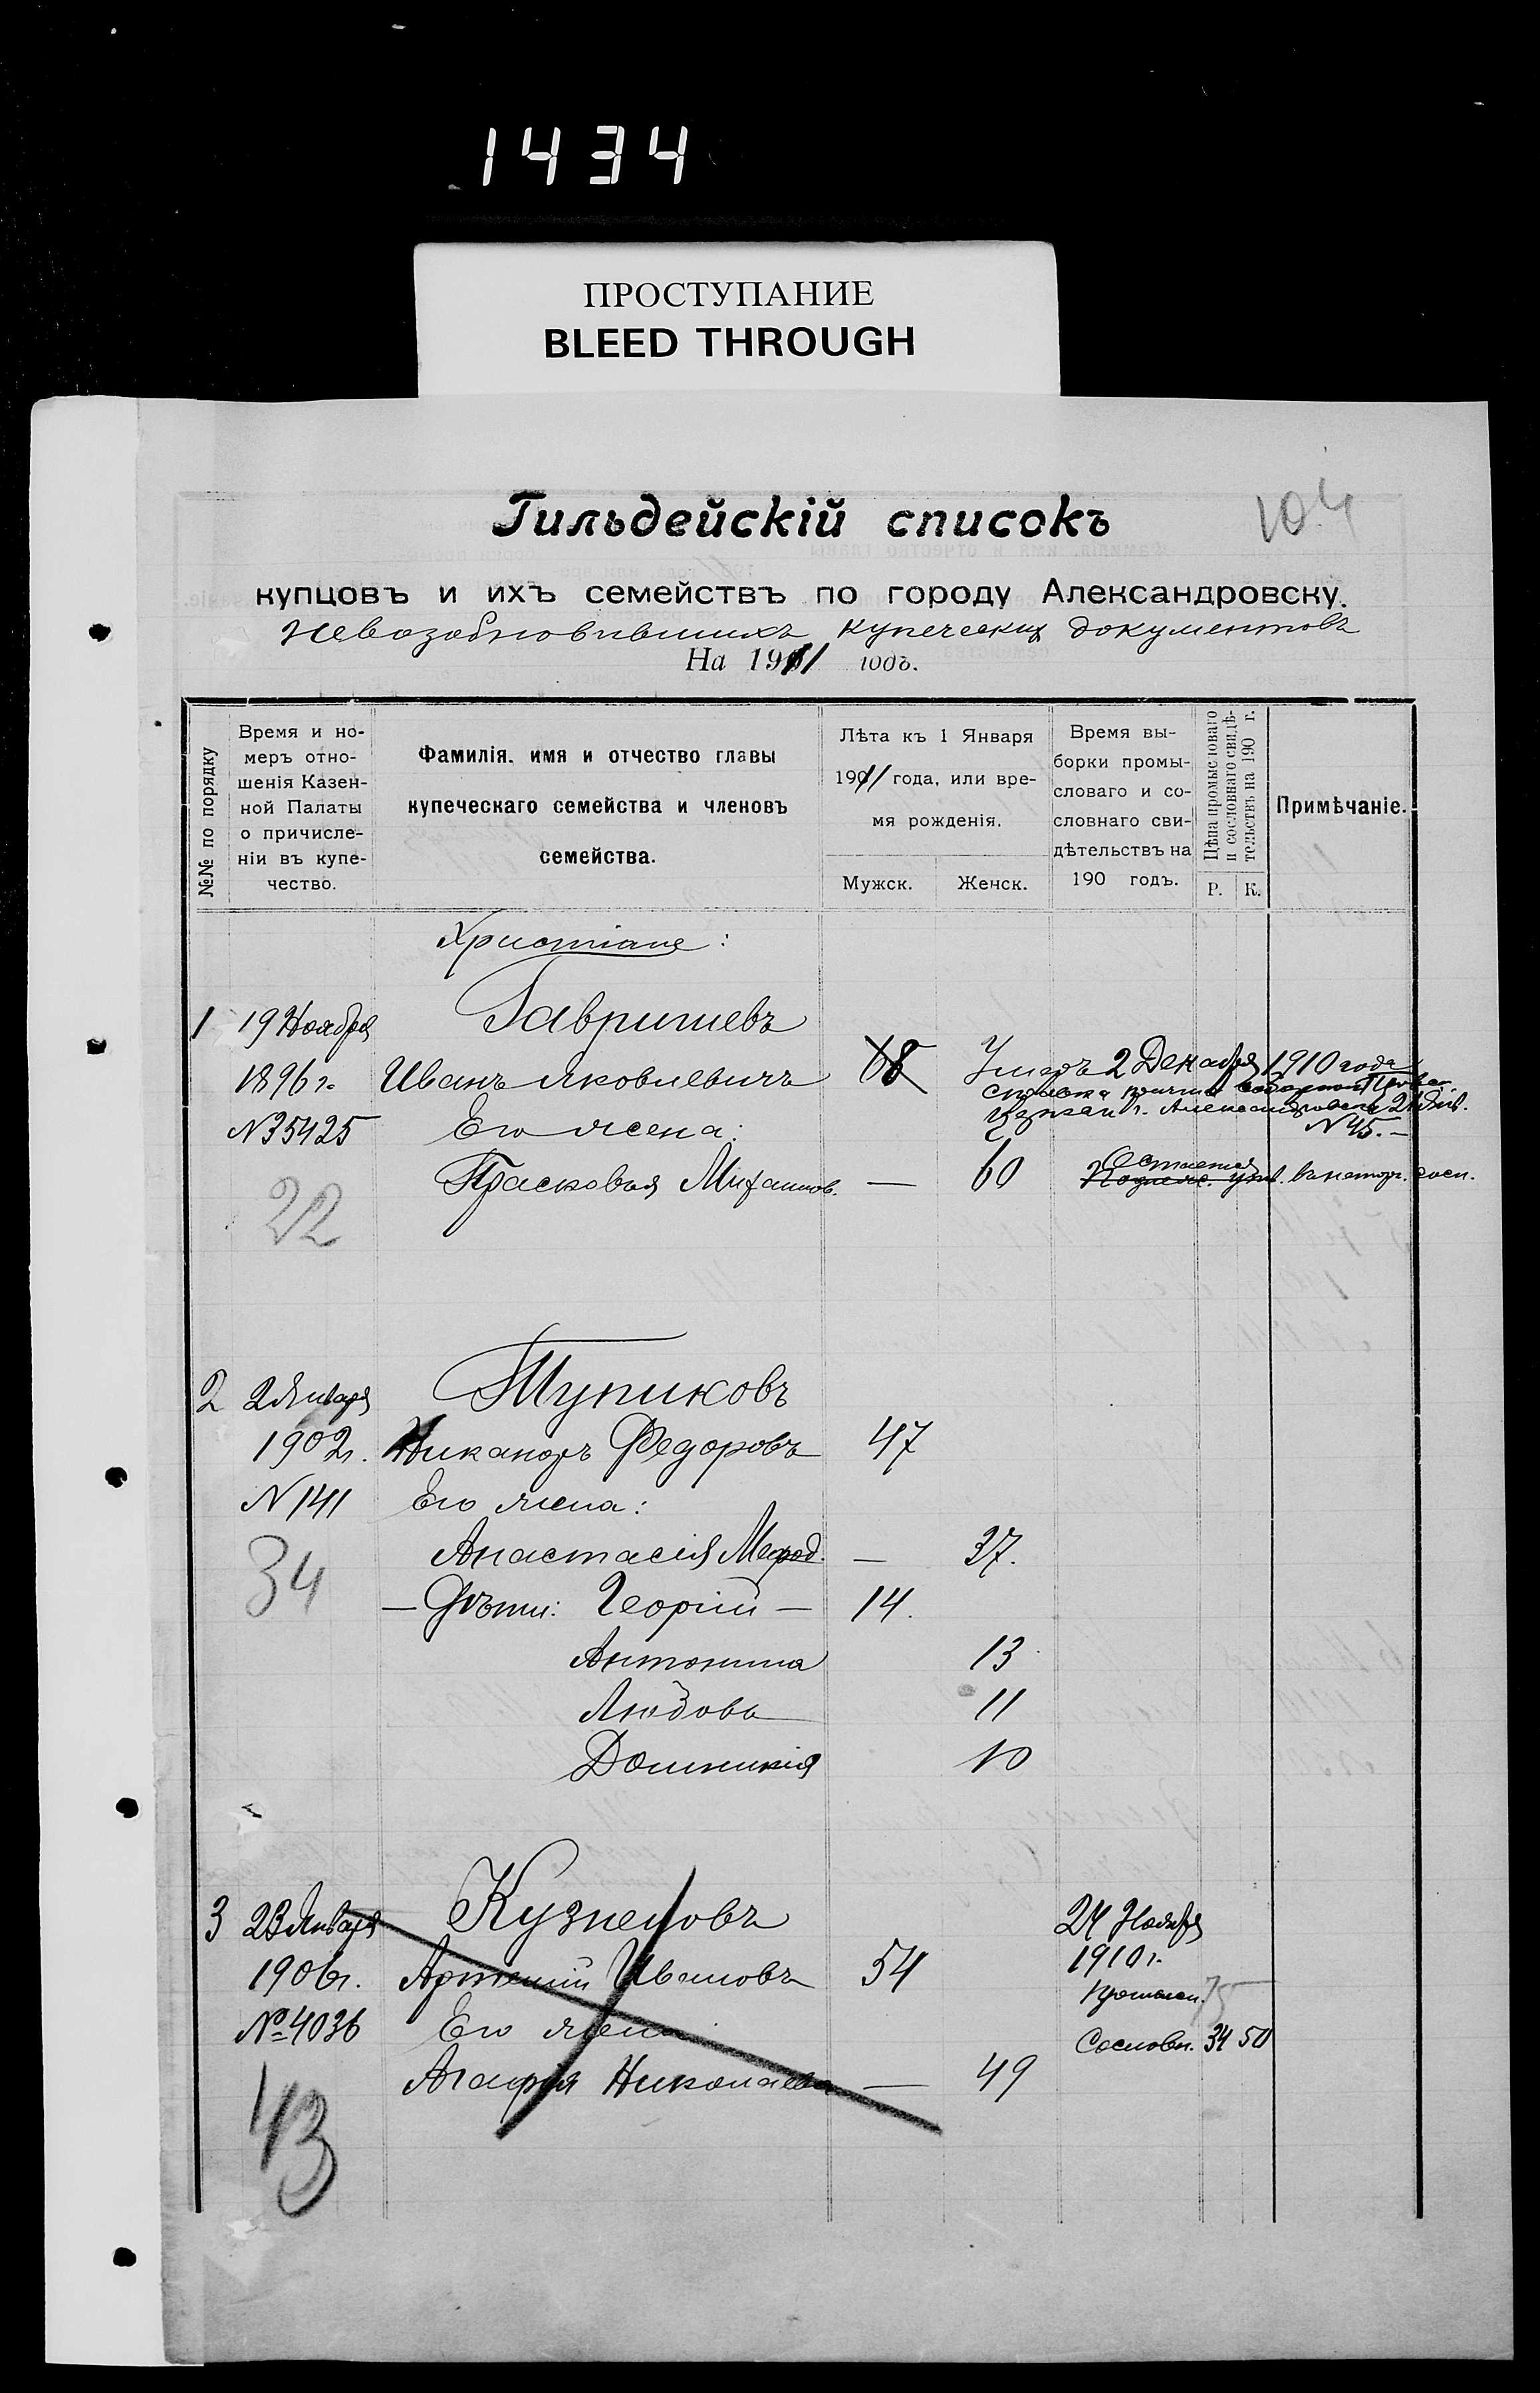 1434
ПРОСТУПАНИЕ
BLEED THROUGH
104
Гильдейскій списокъ
купцовъ и ихъ семействъ по городу Александровску.
Невозобновившихъ купеческихъ документовъ
На 1911 годъ.
№№ по порядку
Время и но-
меръ отно-
шенія Казен-
ной Палаты
о причисле-
ніи въ купе-
чество.
Фамилія, имя и отчество главы
купеческаго семейства и членовъ
семейства.
Лѣта къ 1 Января
1911 года, или вре-
мя рожденія.
Мужск. Женск.
Время вы-
борки промы-
словаго и со-
словнаго сви-
дѣтельствъ на
190 годъ.
Цѣна промысловаго
и сословнаго свидѣ-
тельствъ на 190 г.
Р. К.
Примѣчаніе.
Христіане:
1 19 Ноября Гавришевъ
1896 г. Иванъ Яковлевичъ 68 Умеръ 2 Декабря 1910 года
справка причта
г. Александровска
N 35425 Его жена: N 45.-
Прасковья Михайлов. — 60 Остается
22
2 2 Января Тупиковъ
1902 г. Никаноръ Федоровъ 47
N 141 Его жена:
Анастасія — 37.
34 — Дѣти: Георгій — 14.
Антонина 13
Любовь 11
Домникія 10
3 23 Января Кузнецовъ 24 Ноября
1906 г. Артемій Ивановъ 54 1910 г.
Промысл. 75
№ 4036 Его жена Сословн. 34 50
Агафія Николаева — 49
43